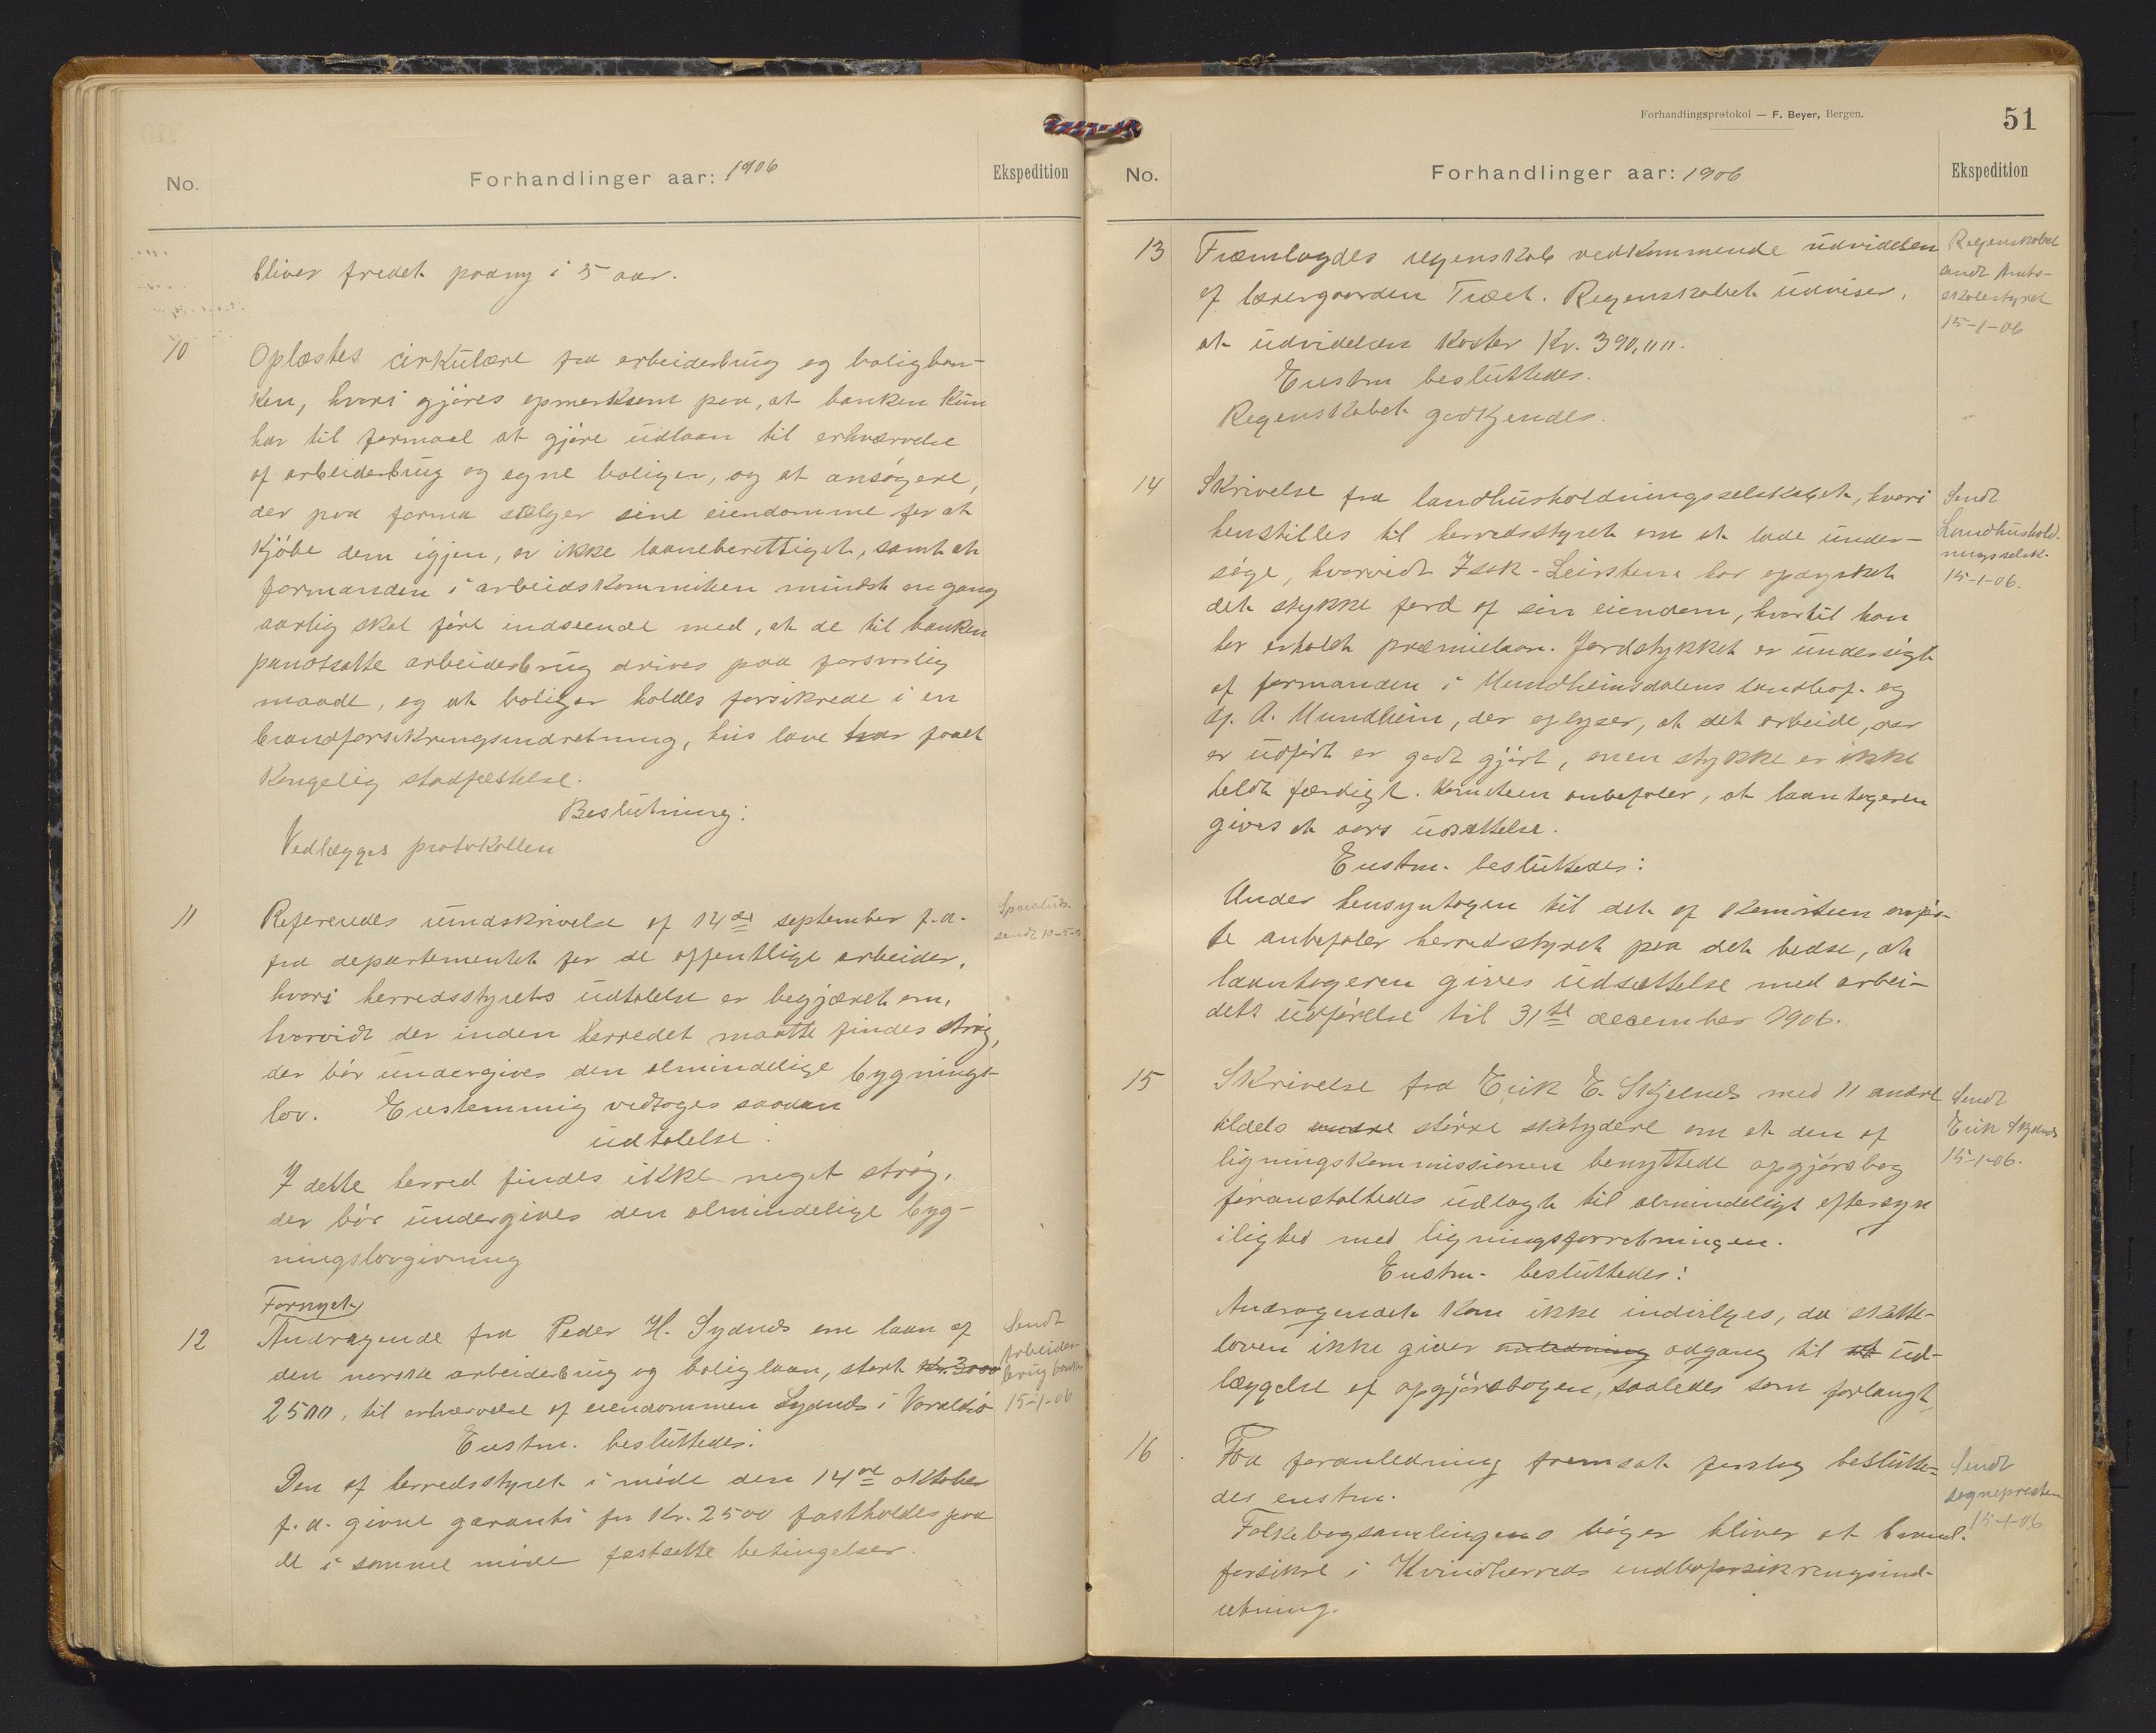 No.
Forhandlinger aar: 1906
Ekspedition
bliver fredet paany i 5 aar.
10
Oplæstes cirkulære fra arbeiderbrug og boligban-
ken, hvori gjøres opmerksom paa, at banken kun
har til formaal at gjøre udlaan til erhvervelse
af arbeiderbrug og egne boliger, og at ansøgere,
der pro forma sælger sine eiendomme for at
kjøbe dem igjen, er ikke laaneberettiget, samt at
formanden i arbeidskommiteen mindst en gang
aarlig skal føre indseende med, at de til banken
pantsatte arbeiderbrug drives paa forsvarlig
maade, og at boliger holdes forsikrede i en
brandforsikringsindretning, hvis love har faaet
kongelig stadfæstelse.
Beslutning:
Vedlægges protokollen
11
Refereredes rundskrivelse af 14de september f.a.
fra departementet for de offentlige arbeider,
hvori herredsstyrets udtalelse er begjæret om,
hvorvidt der inden herredet maatte findes strøg,
der bør undergives den almindelige bygnings-
lov. Enstemmig vedtoges saadan
udtalelse:
I dette herred findes ikke noget strøg,
der bør undergives den almindelige byg-
ningslovgivning
sendt 10-5-06
Fornyet
12
Andragende fra Peder H. Sydnes om laan af
den norske arbeiderbrug og boliglaan, stort kr. 3000
2500, til erhvervelse af eiendommen Sydnes i Varaldsø
Enstm. besluttedes:
Den af herredsstyret i møde den 14de oktober
f.a. givne garanti for kr. 2500 fastholdes paa
de i samme møde fastsatte betingelser.
Sendt
Arbeider-
brug banken
15-1-06
Forhandlingsprotokol — F. Beyer, Bergen.
51
No.
Forhandlinger aar: 1906
Ekspedition
13
Fremlagdes regnskab vedkommende udvidelsen
af lærergaarden Træet. Regnskabet udviser,
at udvidelsen koster Kr. 390,00.
Enstm besluttedes.
Regnskabet godkjendes.
Regnskabet
sendt Amts-
skolestyret
15-1-06
14
Skrivelse fra landhusholdningsselskabet, hvori
henstilles til herredsstyret om at lade under-
søge, hvorvidt Isak Leirstein har opdyrket
det stykke jord af sin eiendom, hvortil han
har erholdt præmielaan. Jordstykket er undersøgt
af formanden i Mundheimsdalens landbof. og
af A. Mundheim, der oplyser, at det arbeide, der
er udført er godt gjort, men stykke er ikke
heldt færdigt. Komiteen anbefaler, at laantageren
gives et aars udsættelse.
Enstm. besluttedes:
Under hensyntagen til det af komiteen anfør-
te anbefaler herredsstyret paa det bedste, at
laantageren gives udsættelse med arbei-
dets udførelse til 31te december 1906.
Sendt
Landhushold-
ningsselsk.
15-1-06.
15
Skrivelse fra Erik E. Skjelnes med 11 andre
tildels andre større skatydere om at den af
ligningskommissionen benyttede opgjørsbog
foranstaltedes udlagt til almindeligt eftersyn
ilighed med ligningsforretningen.
Enstm. besluttedes:
Andragendet kan ikke indvilges, da skatte-
loven ikke giver anledning adgang til at ud-
læggelse af opgjørsbogen, saaledes som forlangt.
Sendt
Erik Skjelnes
15-1-06.
16
Paa foranledning fremsat forslag beslutte-
des enstm.
Folkebogsamlingens bøger bliver at brand-
forsikre i Kvindherreds indboforsikringsind-
retning.
Sendt
sognepresten
15-1-06